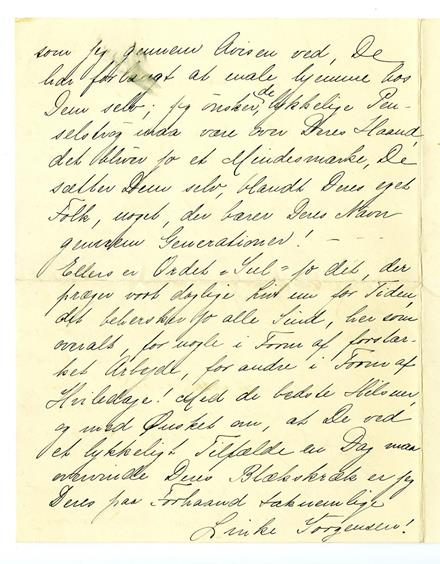 som jeg gennem Avisen ved, De
har forlangt at male hjemme hos
Dem selv; jeg ønsker, de lykkelige Pen-
selstrøg maa være over Deres Haand,
det bliver jo et Mindesmærke, De
sætter Dem selv, blandt Deres eget
Folk, noget, der bærer Deres Navn
gennem Generationer! - -
Ellers er Ordet "Jul" jo det, der
præger vort daglige Liv nu for Tiden,
det behersker jo alle Sind, her som
overalt, for nogle i Form af forstær-
ket Arbejde, for andre i Form af
Hviledage! Med de bedste Hilsner,
og med Ønsket om, at De ved
et lykkeligt Tilfælde en Dag maa
overvinde Deres Blækskræk er jeg
Deres paa Forhaand taknemlige
Linke Jørgensen!